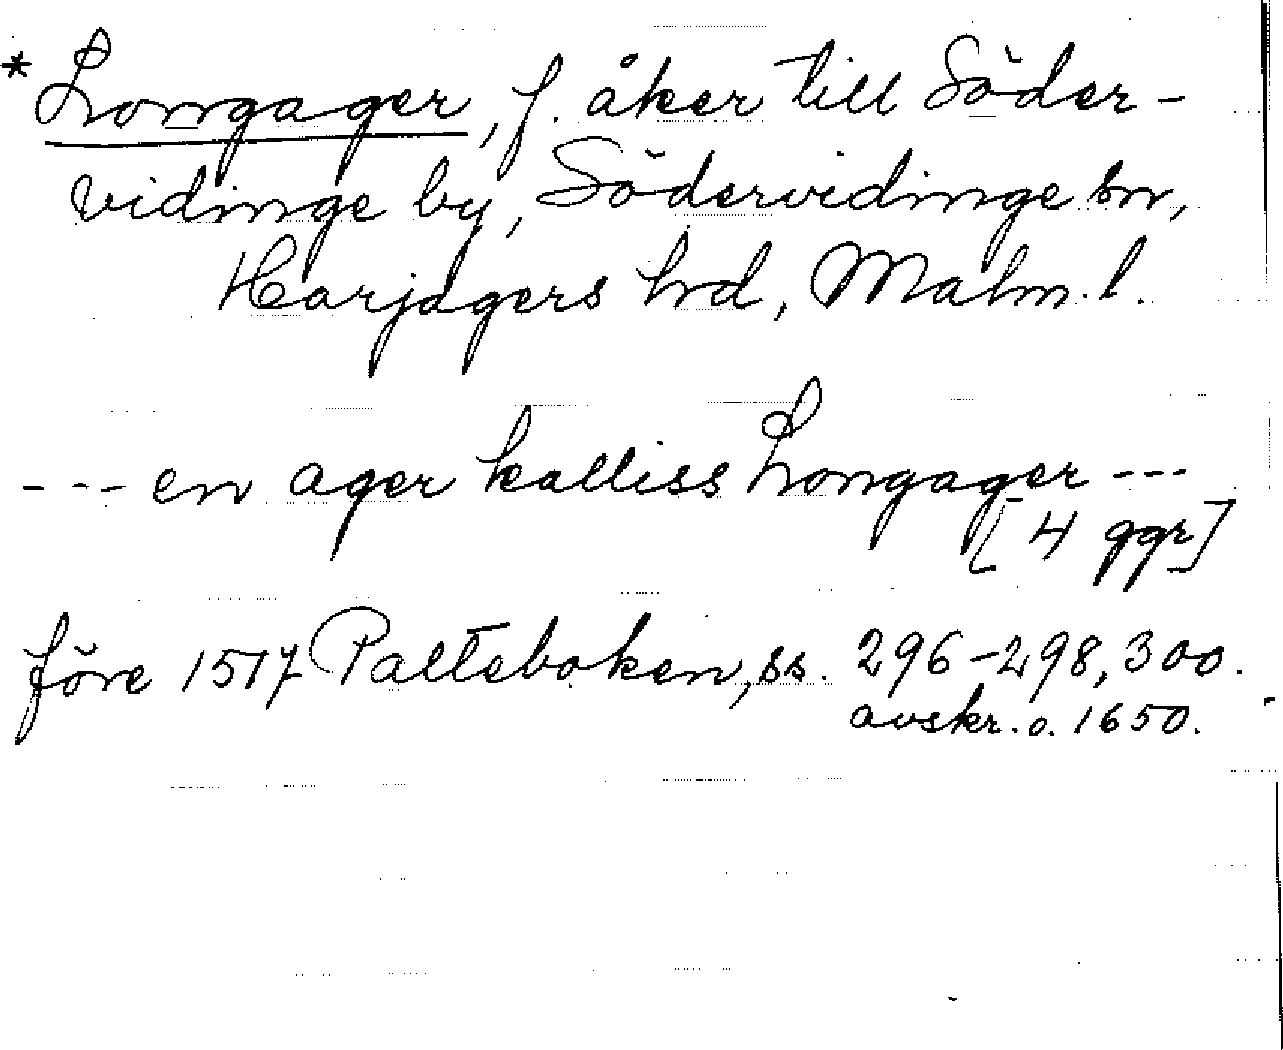 * Longager, f. åker till Söder-
vidinge by, Södervidinge sn,
Harjagers hrd, Malm. l.
--- en ager kalliss Longager ---
[4 ggr]
före 1517 Palteboken, ss. 296-298, 300.
avskr. o. 1650.